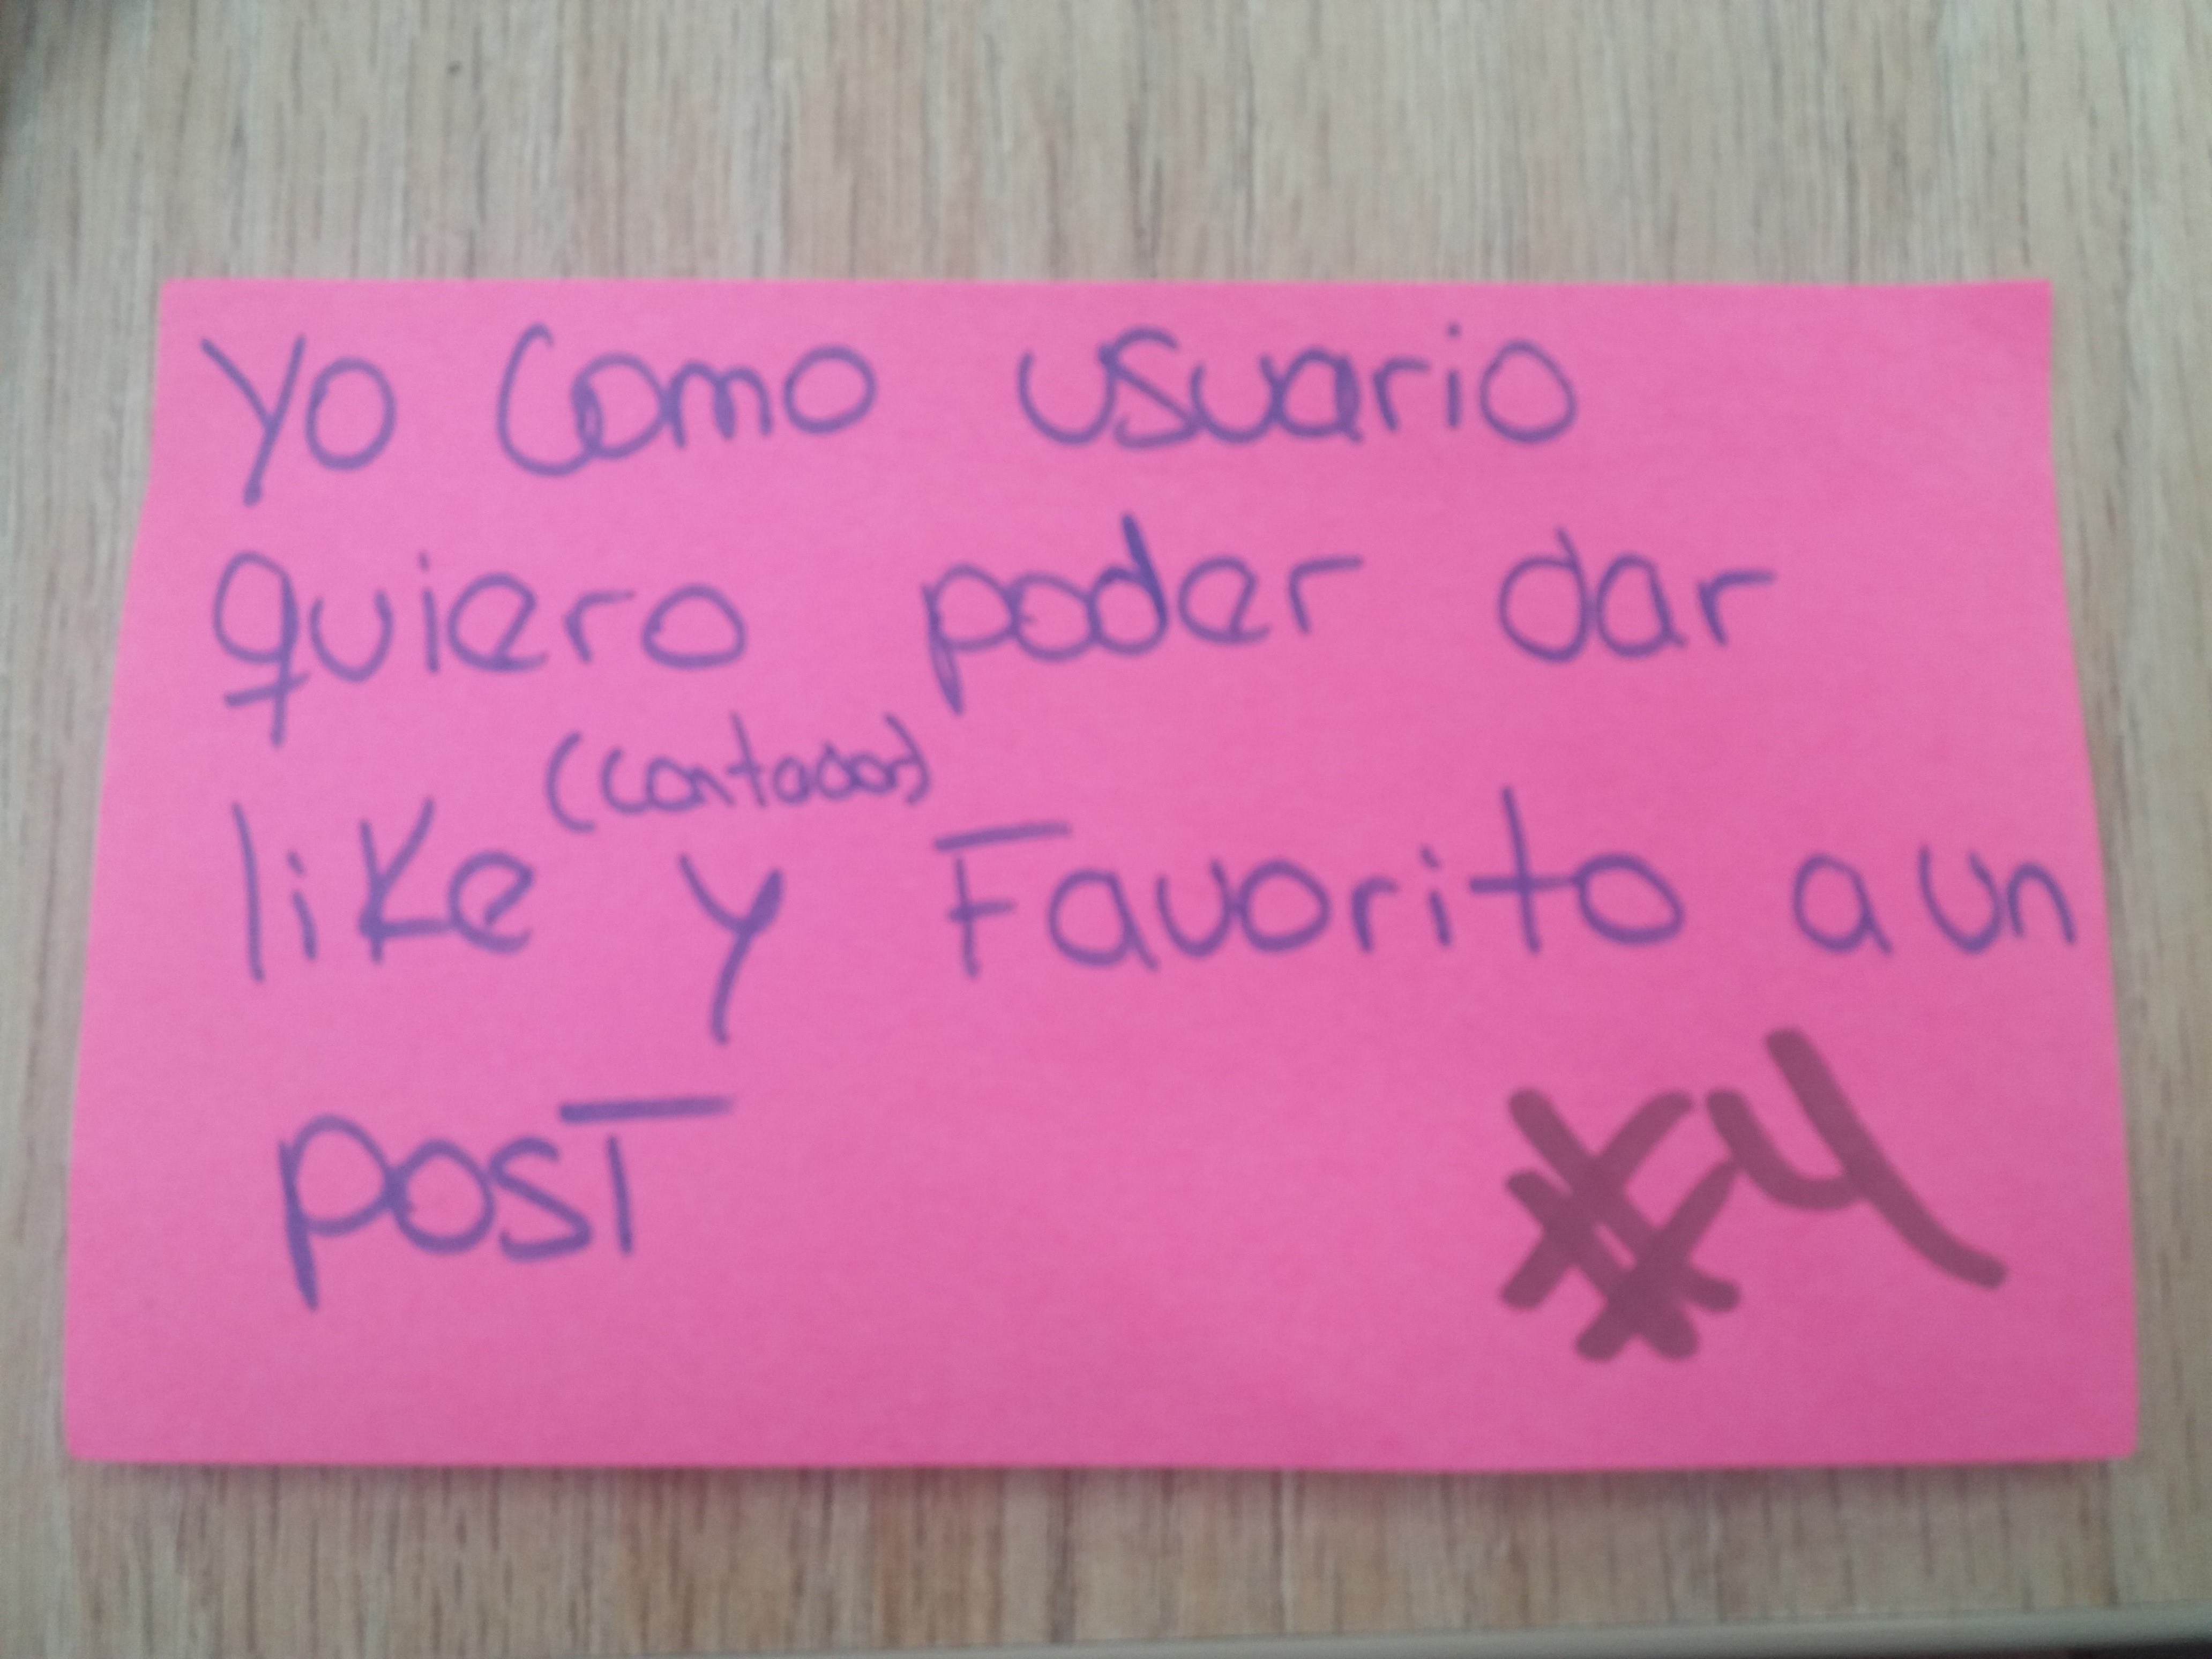 Yo como usuario
quiero poder dar
(contador)
like y Favorito a un
post
#4